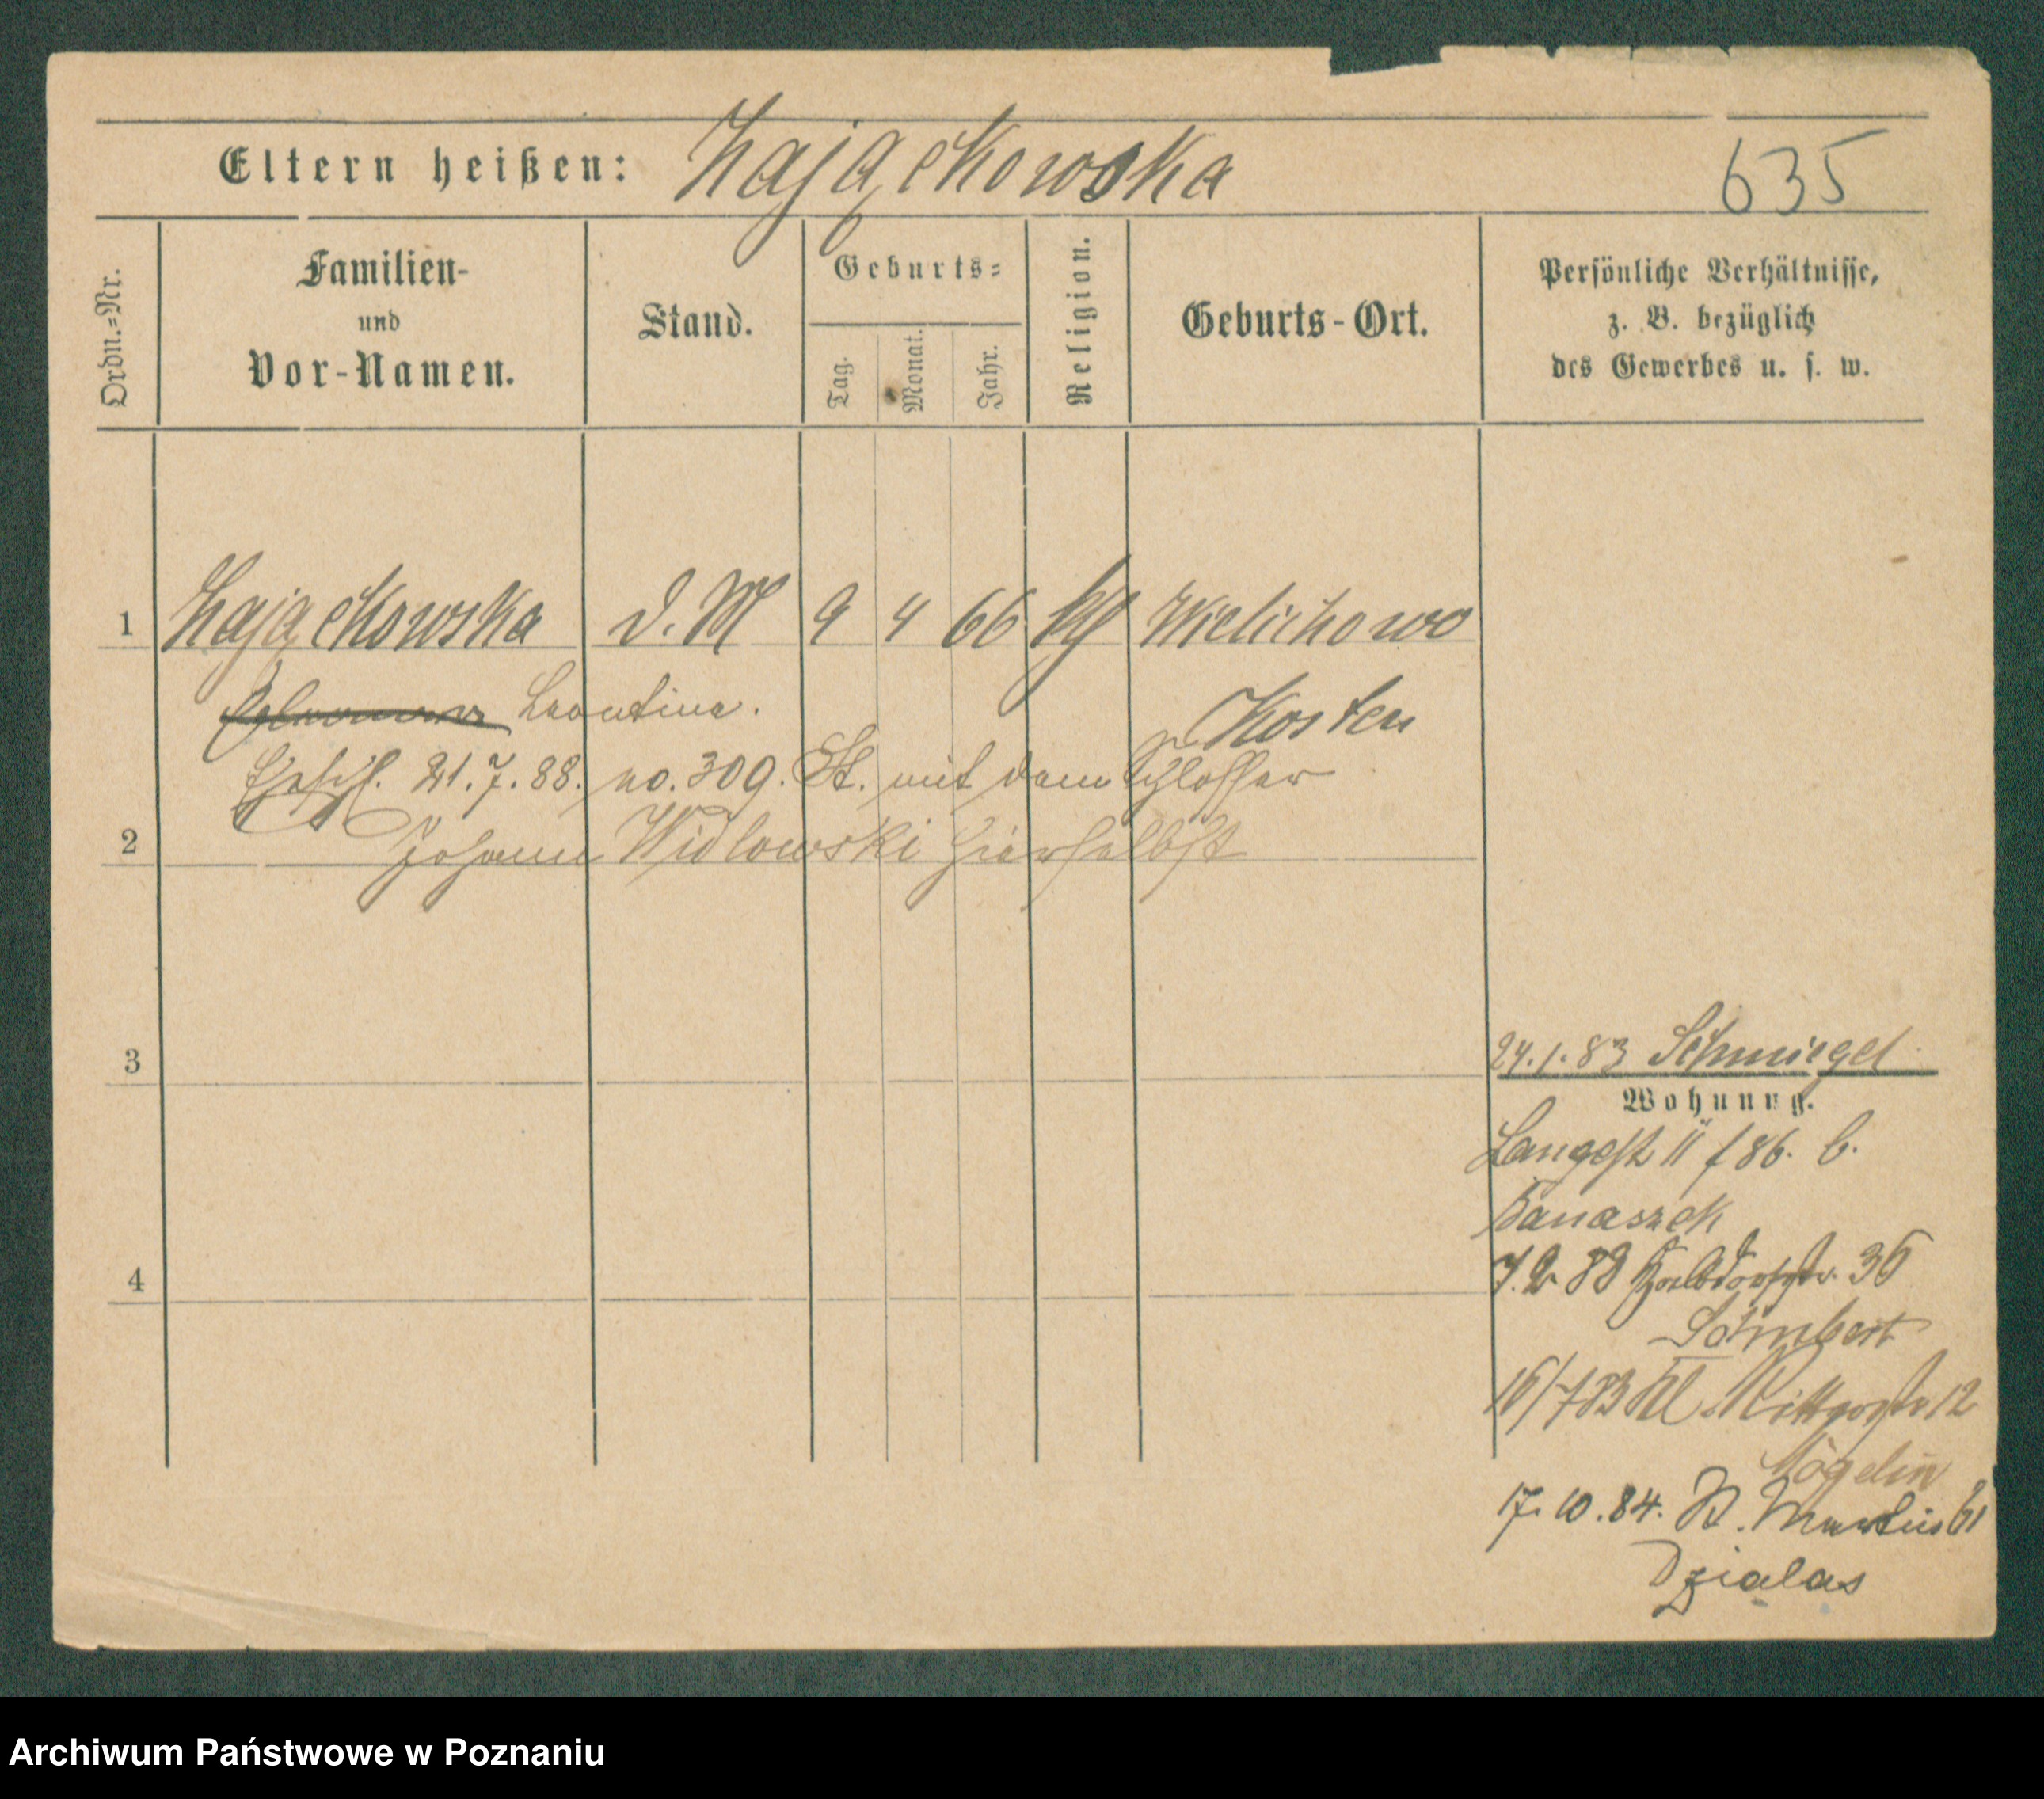 Eltern heißen: Zajączkowska 635
Ordn.=Nr.
Familien-
und
Vor-Namen.
Stand.
Geburts=
Tag.
Monat.
Jahr.
Religion.
Geburts-Ort.
Persönliche Verhältnisse,
z. B. bezüglich
des Gewerbes u. s. w.
1 Zajączkowska d. M 9 4 66 kg Wielichowo
Leontine. Kosten
Ehschl. 21.7.88. no. 309. St. mit dem Schlosser
2 Johann Widlowski hierselbst
3
24.1.83 Schmiegel
Wohnung.
Langestr 11 f 86. b.
Banaszek
4
7.2 83 Halbdorfstr. 36
16/7 83 Kl. Ritterstr 12
17.10.84. St. Martin 61
Dzialas
Archiwum Państwowe w Poznaniu